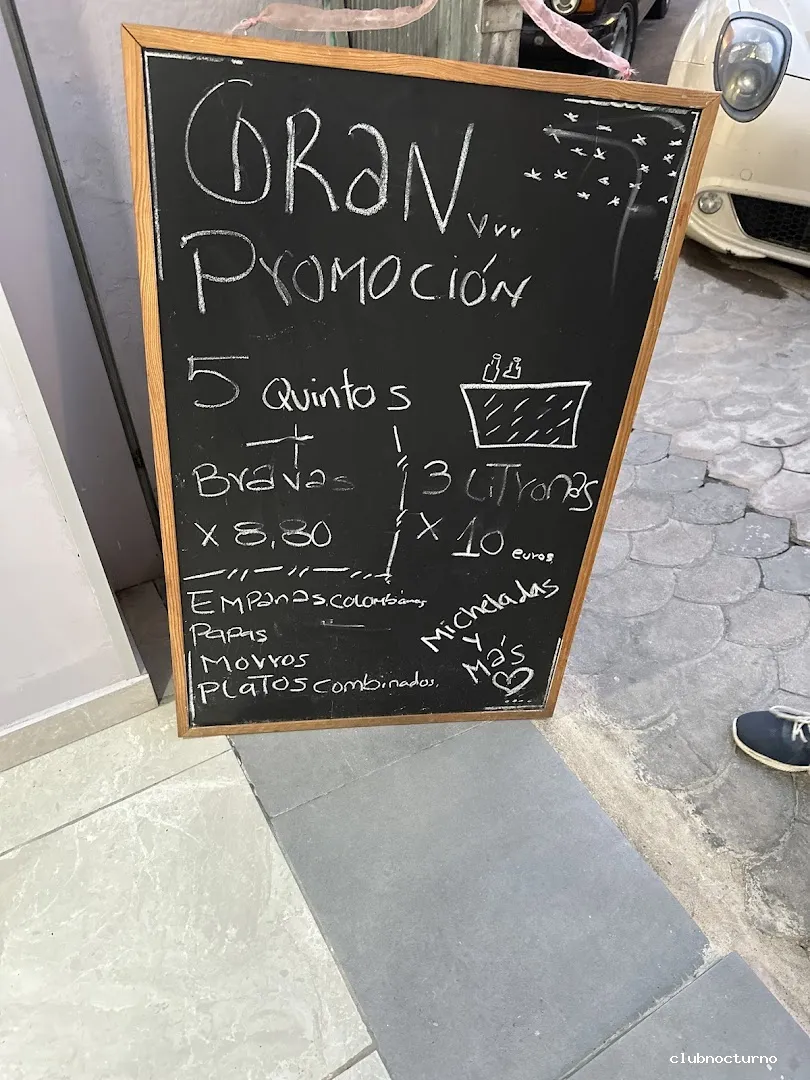 GRAN
Promoción
5 Quintos
+
Bravas
x 8,80
3 LiTronas
x 10 euros
Empanas.colombianas
Papas
Morros
PlaTos combinados.
Micheladas
y
Más
clubnocturno